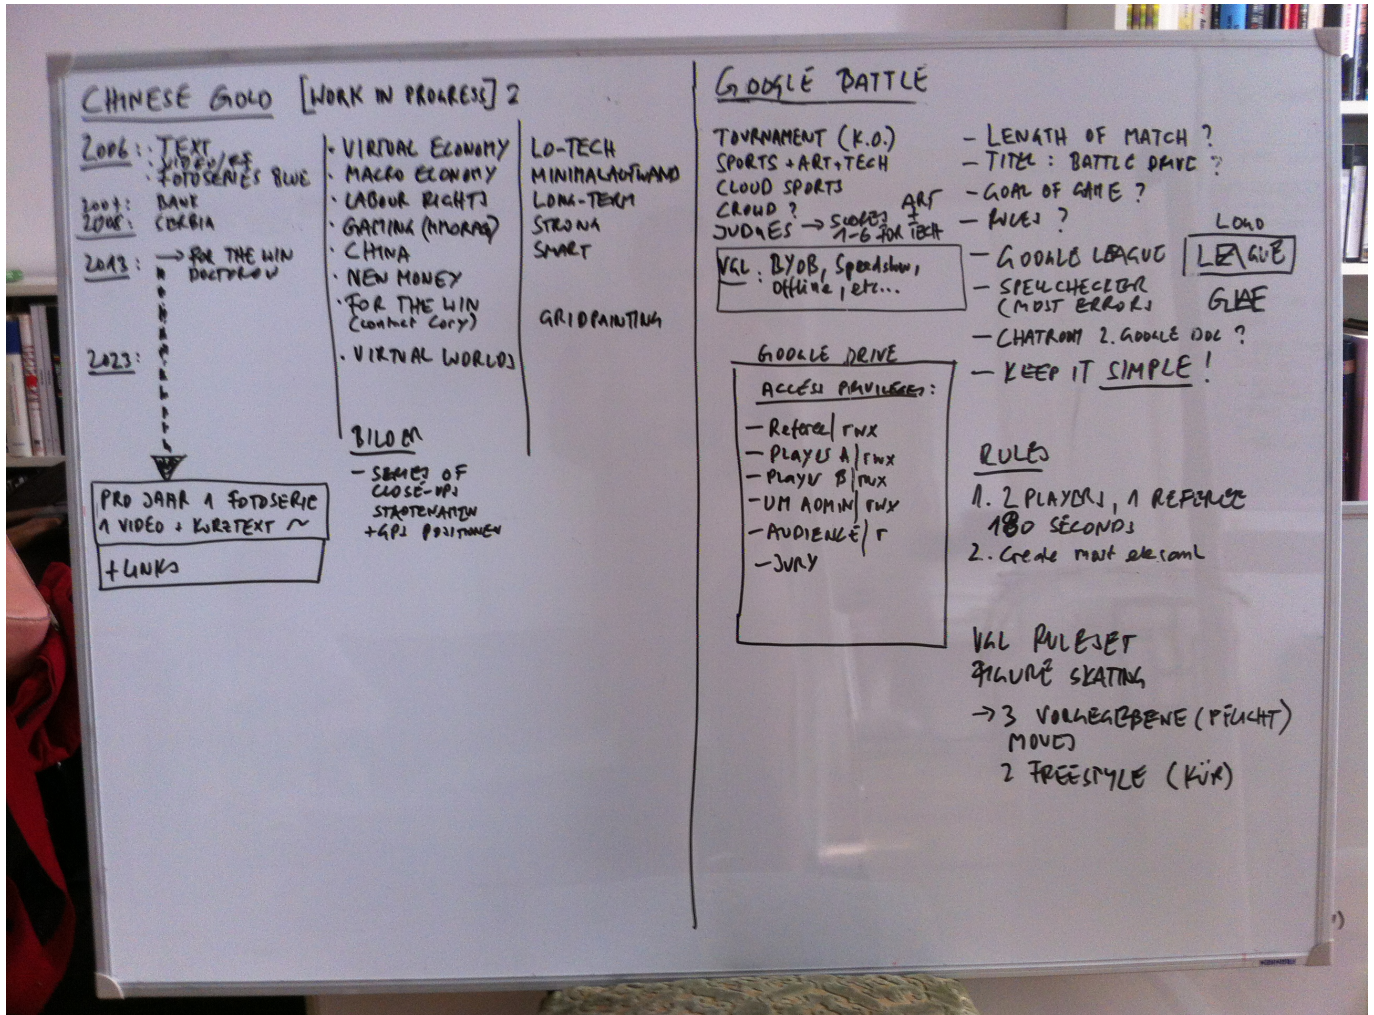 CHINESE GOLD [WORK IN PROGRESS] 2
2006: · TEXT
· VIDEO/
· FOTOSERIES BLUE
2007: BANK
2008: SERBIA
2013: → FOR THE WIN
DOCTOROW
2023:
PRO JAAR 1 FOTOSERIE
1 VIDEO + KURZTEXT ~
+ LINKS
· VIRTUAL ECONOMY
· MACRO ECONOMY
· LABOUR RIGHTS
· GAMING (MMORPG)
· CHINA
· NEW MONEY
· FOR THE WIN
(contact Cory)
· VIRTUAL WORLDS
BILDER
– SERIES OF
CLOSE-UPS
STADTENAMEN
+ GPS POSITIONEN
LO-TECH
MINIMALAUFWAND
LONG-TERM
STRONG
SMART
GRIDPAINTING
GOOGLE BATTLE
TOURNAMENT (K.O.)
SPORTS + ART + TECH
CLOUD SPORTS
CROWD ?
JUDGES → SCORES ART +
1–6 FOR TECH
VGL: BYOB, Speedshow,
Offline, etc...
GOOGLE DRIVE
ACCESS PRIVILEGES:
– Referee/ rwx
– PLAYER A/ rwx
– PLAYER B/ rwx
– UM ADMIN/ rwx
– AUDIENCE/ r
– JURY
– LENGTH OF MATCH ?
– TITEL : BATTLE DRIVE ?
– GOAL OF GAME ?
– RULES ?
– GOOGLE LEAGUE
– SPELLCHECKER
(MOST ERRORS
– CHATROOM 2. GOOGLE DOC ?
– KEEP IT SIMPLE !
LOGO
LEAGUE
RULES
1. 2 PLAYERS, 1 REFEREE
180 SECONDS
2. Create most
VGL RULESET
FIGURE SKATING
→ 3 VORGEGEBENE (PFLICHT)
MOVES
2 FREESTYLE (KÜR)